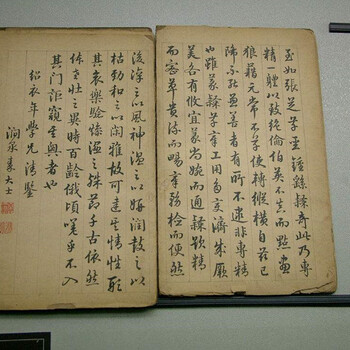 至如張芝草聖鍾繇隸奇此乃專
精一體以致絕倫伯英不真而點畫
狼藉元常不草使轉縱橫自茲已
降不能兼善者有所不逮非專精
也雖篆隸草章工用多變濟成厥
美各有攸宜篆尚婉而通隸欲精
而密草貴流而暢章務檢而便然
後凜之以風神溫之以妍潤鼓之以
枯勁和之以閑雅故可達其情性形
其哀樂驗燥濕之殊節千古依然
體老壯之異時百齡俄頃嗟乎不入
其門詎窺其奧者也
紹衣年學兄清鑒